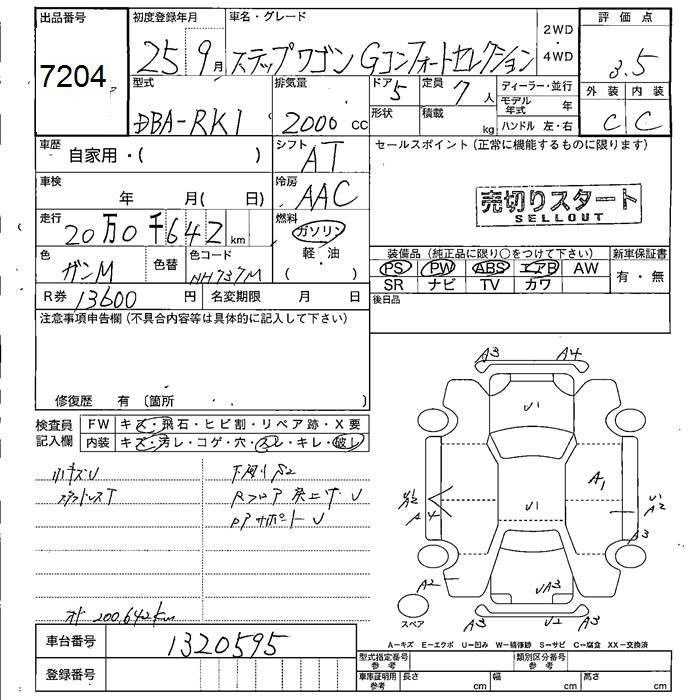 出品番号
7204
初度登録年月
25 9月
車名・グレード
ステップワゴン Gコンフォートセレクション
2WD
・
4WD
評価点
3.5
外装 内装
C C
型式
DBA-RK1
排気量
2000 cc
ドア 5
形状
定員 7人
積載 kg
ディーラー・並行
モデル年式 年
ハンドル 左・右
車歴
自家用・( )
シフト
AT
セールスポイント(正常に機能するものに限ります)
売切りスタート
SELLOUT
車検
年 月( 日)
冷房
AAC
走行
20万0千642 km
燃料
ガソリン
軽・油
( )
色
ガンM
色替
色コード
NH737M
装備品(純正品に限り○をつけて下さい)
PS PW ABS エアB AW
SR ナビ TV カワ
新車保証書
有・無
R券 13600円
名変期限 月 日
後日品
注意事項申告欄(不具合内容等は具体的に記入して下さい)
修復歴 有〔箇所 〕
検査員
記入欄
FW キズ・飛石・ヒビ割・リペア跡・X要
内装 キズ・汚レ・コゲ・穴・スレ・キレ・破レ
小キズU
下回りS2
Rフロア 突上げ U
オド 200,642km
A3 A4
U1
A1
U1
A2
A4
U1
A2
A3
A2
UA3
A3 U2 A3
スペア
車台番号
1320595
登録番号
A-キズ E-エクボ U-凹み W-補修跡 S-サビ C-腐食 XX-交換済
型式指定番号
参考
類別区分番号
参考
車庫証明用
参考
長さ cm 幅 cm 高さ cm